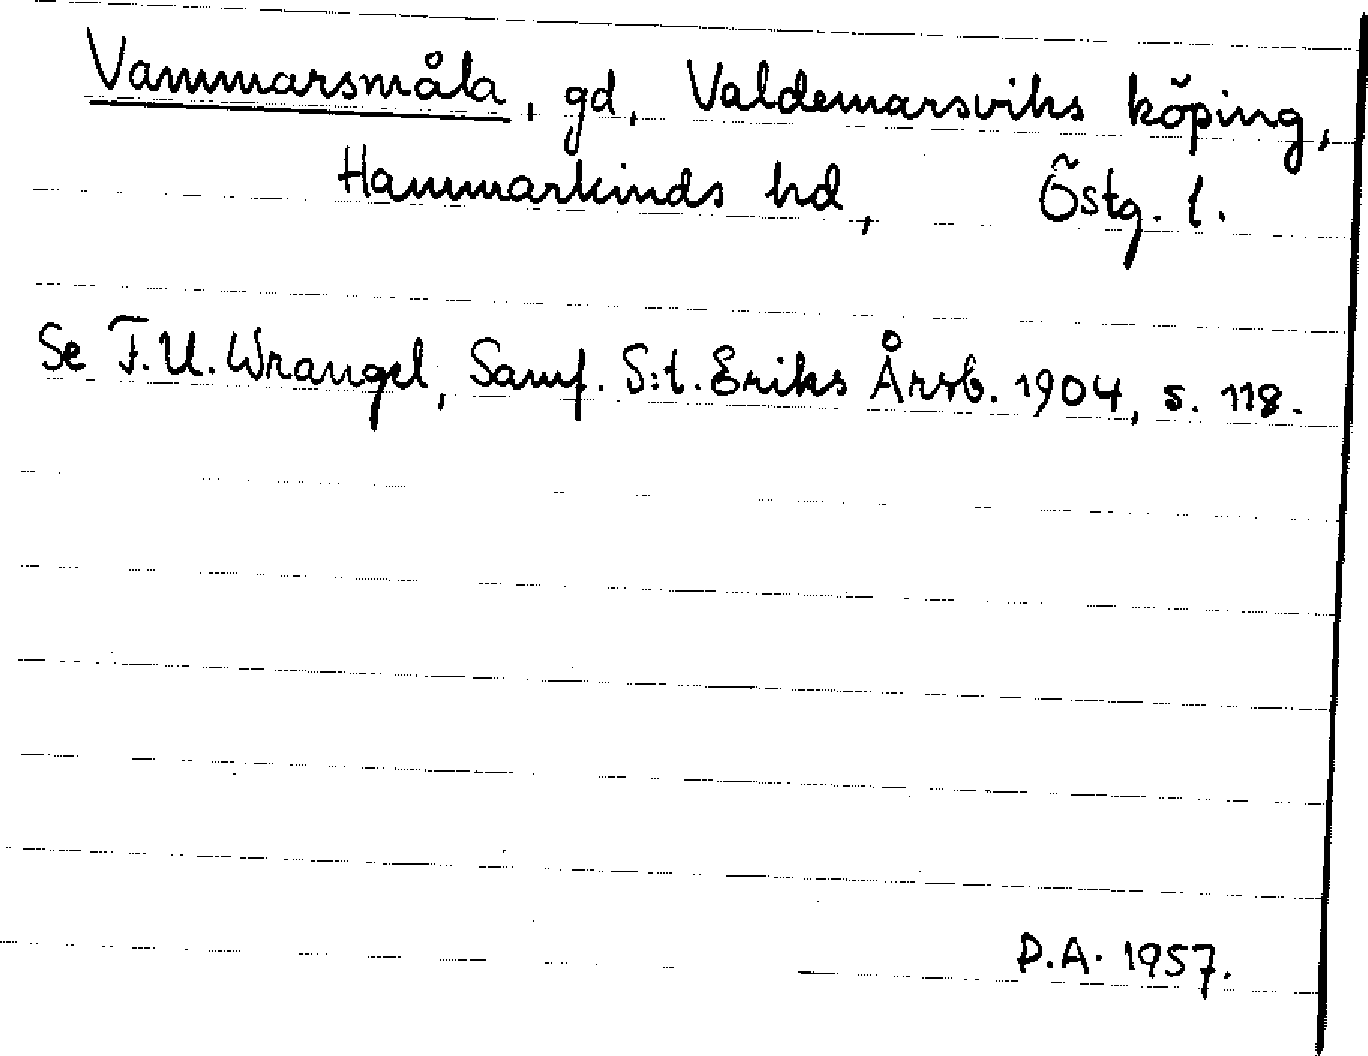 Vammarsmåla, gd, Valdemarsviks köping,
Hammarkinds hd, Östg. l.
Se F.U. Wrangel, Samf. S:t. Eriks Årsb. 1904, s. 118.
D.A. 1957.